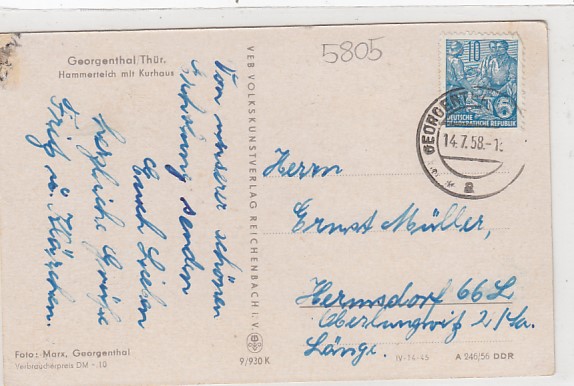 Georgenthal/Thür.
Hammerteich mit Kurhaus
Von unserer schönen
Erholung senden
Euch Lieben
herzliche Grüße
Fritz u. Klärchen.
Foto: Marx, Georgenthal
Verbraucherpreis DM -.10
VEB VOLKSKUNSTVERLAG REICHENBACH I. V.
9/930 K
5805
10
DEUTSCHE
DEMOKRATISCHE REPUBLIK
GEORGENT
14.7.58.-1
a
Herrn
Ernst Müller,
Hermsdorf 66 L
Oberlungwitz 2 /Sa.
Länge.
IV-14-45
A 246/56 DDR